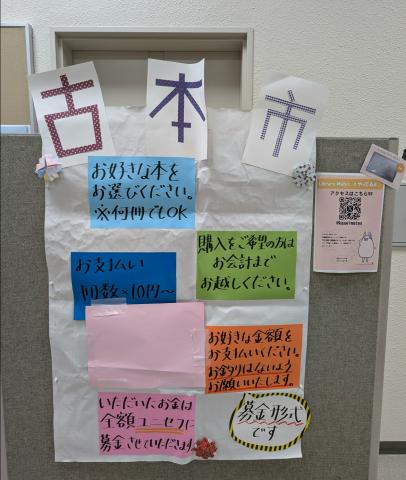 古本市
お好きな本を
お選びください。
※何冊でもOK
購入をご希望の方は
お会計まで
お越しください。
お支払い
冊数×10円〜
お好きな金額を
お支払いください。
お釣りはないよう
お願いいたします。
いただいたお金は
全額ユニセフに
募金させていただきます
募金形式
です
アクセスはこちら!!